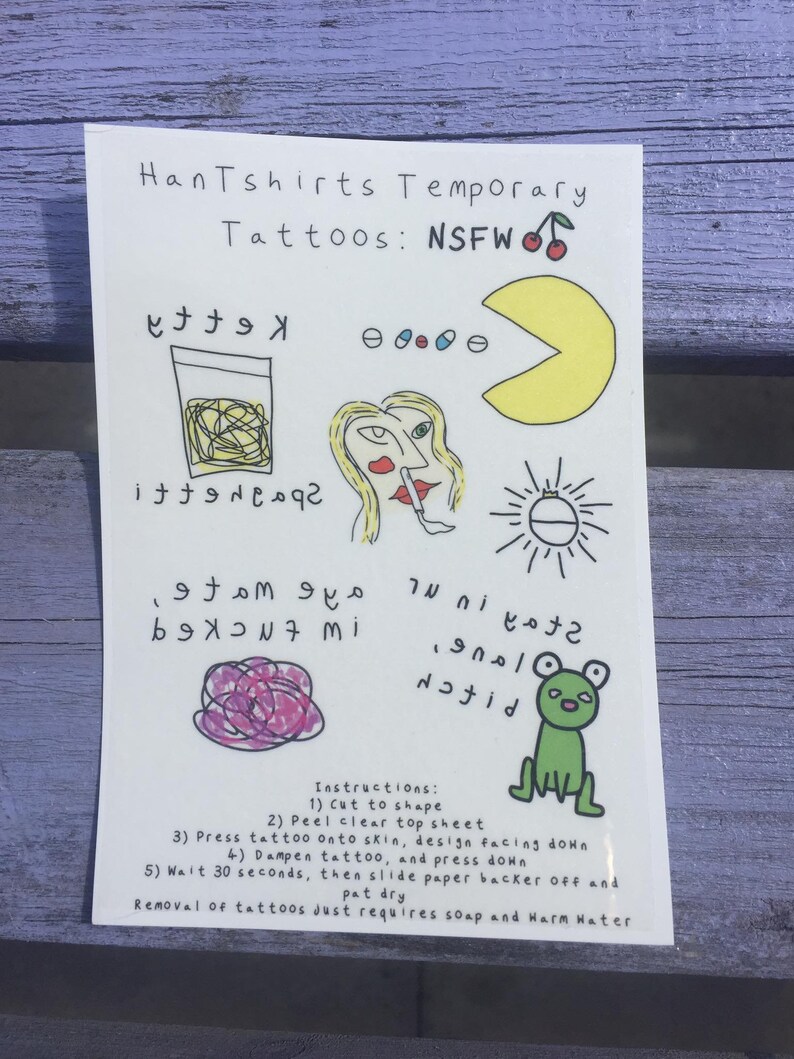 HanTshirts Temporary
Tattoos: NSFW
Ketty
Spaghetti
aye mate,
im fucked
Stay in ur
lane,
bitch
Instructions:
1) Cut to shape
2) Peel clear top sheet
3) Press tattoo onto skin, design facing down
4) Dampen tattoo, and press down
5) Wait 30 seconds, then slide paper backer off and
pat dry
Removal of tattoos just requires soap and warm water